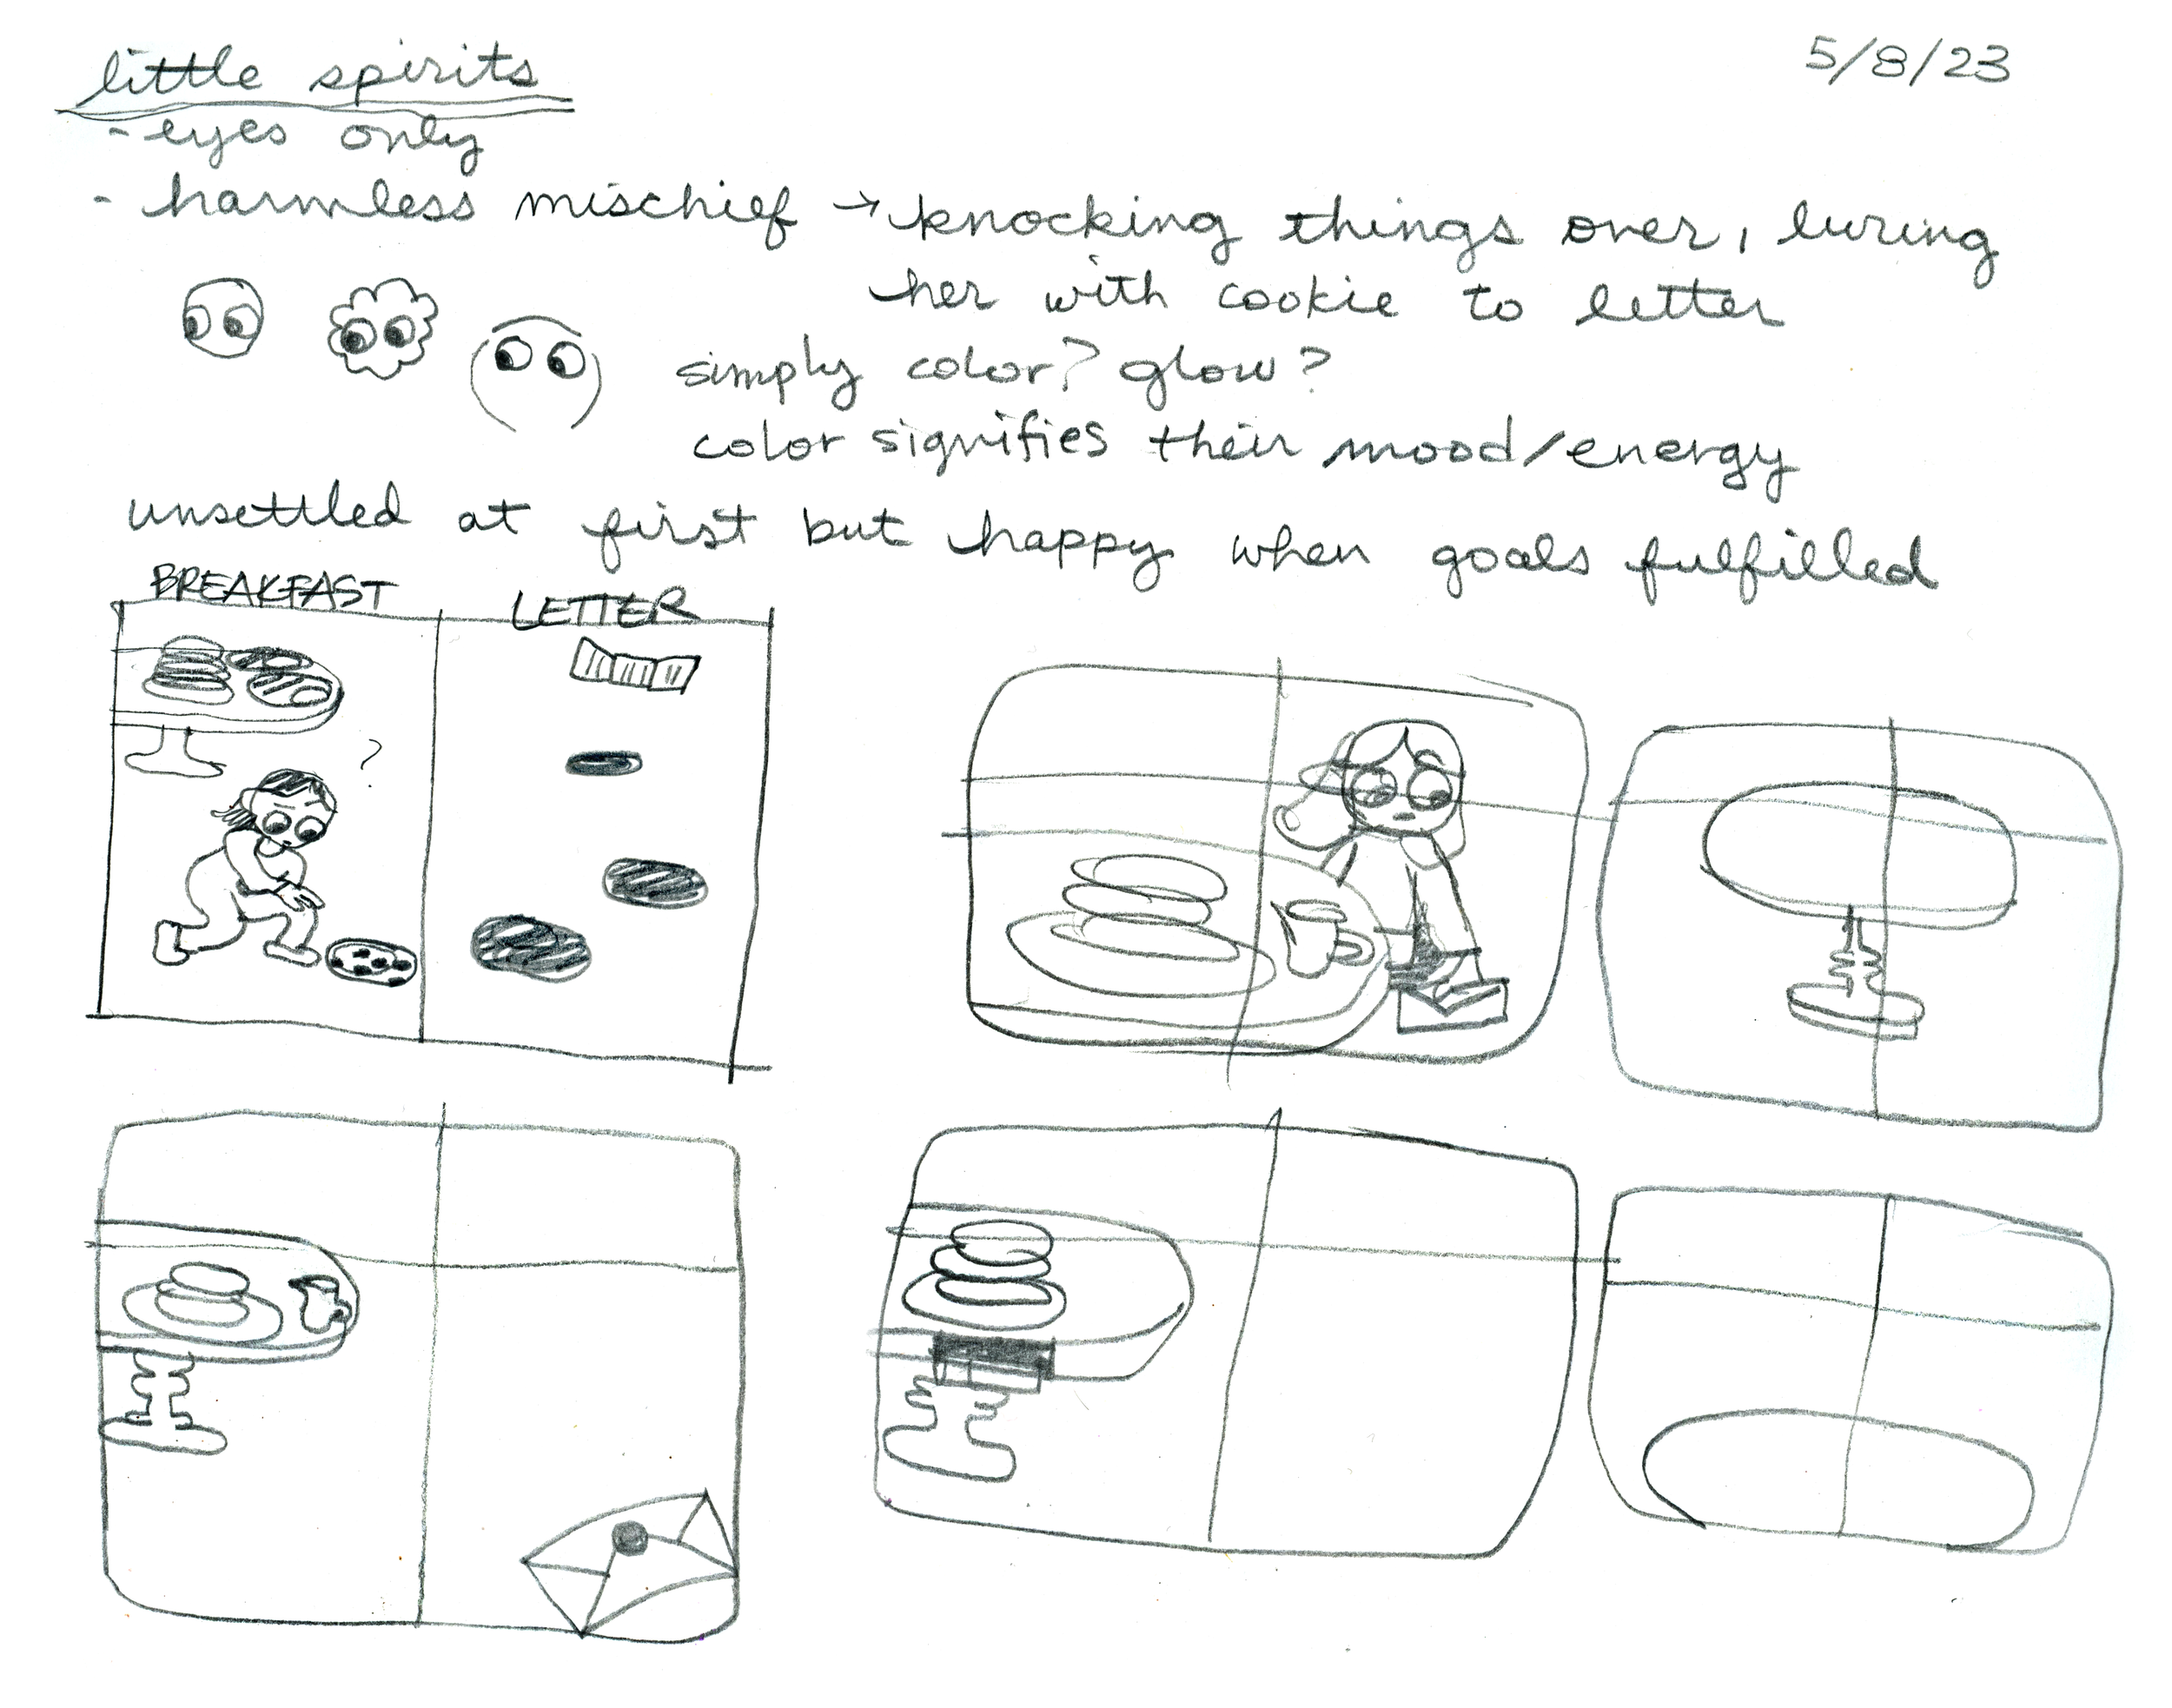 little spirits
5/8/23
- eyes only
- harmless mischief → knocking things over, luring
her with cookie to letter
simply color? glow?
color signifies their mood/energy
unsettled at first but happy when goals fulfilled
BREAKFAST
LETTER
?